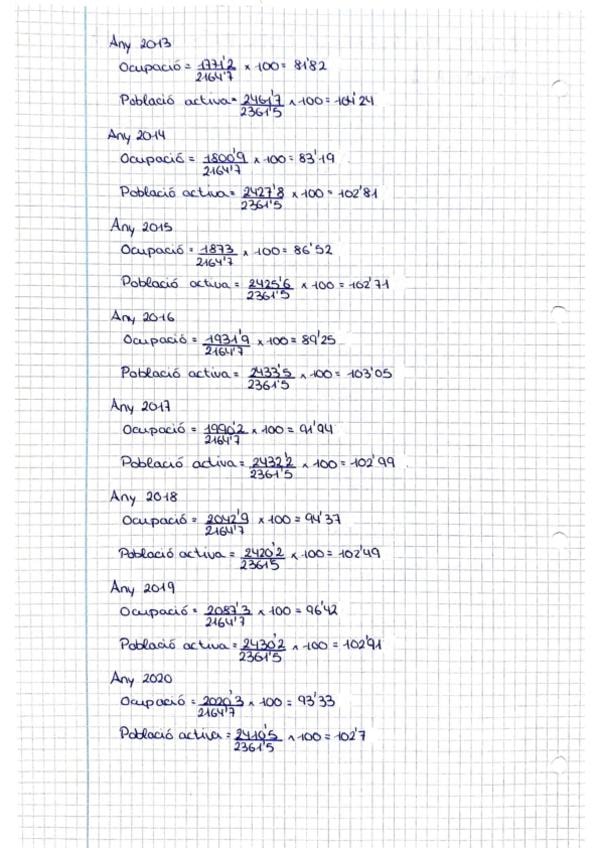 Any 2013
Ocupació = 1771'2 / 2164'7 x 100 = 81'82
Població activa = 2461'7 / 2361'5 x 100 = 104'24
Any 2014
Ocupació = 1800'9 / 2164'7 x 100 = 83'19
Població activa = 2427'8 / 2361'5 x 100 = 102'81
Any 2015
Ocupació = 1873 / 2164'7 x 100 = 86'52
Població activa = 2425'6 / 2361'5 x 100 = 102'71
Any 2016
Ocupació = 1931'9 / 2164'7 x 100 = 89'25
Població activa = 2433'5 / 2361'5 x 100 = 103'05
Any 2017
Ocupació = 1990'2 / 2164'7 x 100 = 91'94
Població activa = 2432'2 / 2361'5 x 100 = 102'99
Any 2018
Ocupació = 2042'9 / 2164'7 x 100 = 94'37
Població activa = 2420'2 / 2361'5 x 100 = 102'49
Any 2019
Ocupació = 2087'3 / 2164'7 x 100 = 96'42
Població activa = 2430'2 / 2361'5 x 100 = 102'91
Any 2020
Ocupació = 2020'3 / 2164'7 x 100 = 93'33
Població activa = 2410'5 / 2361'5 x 100 = 102'7